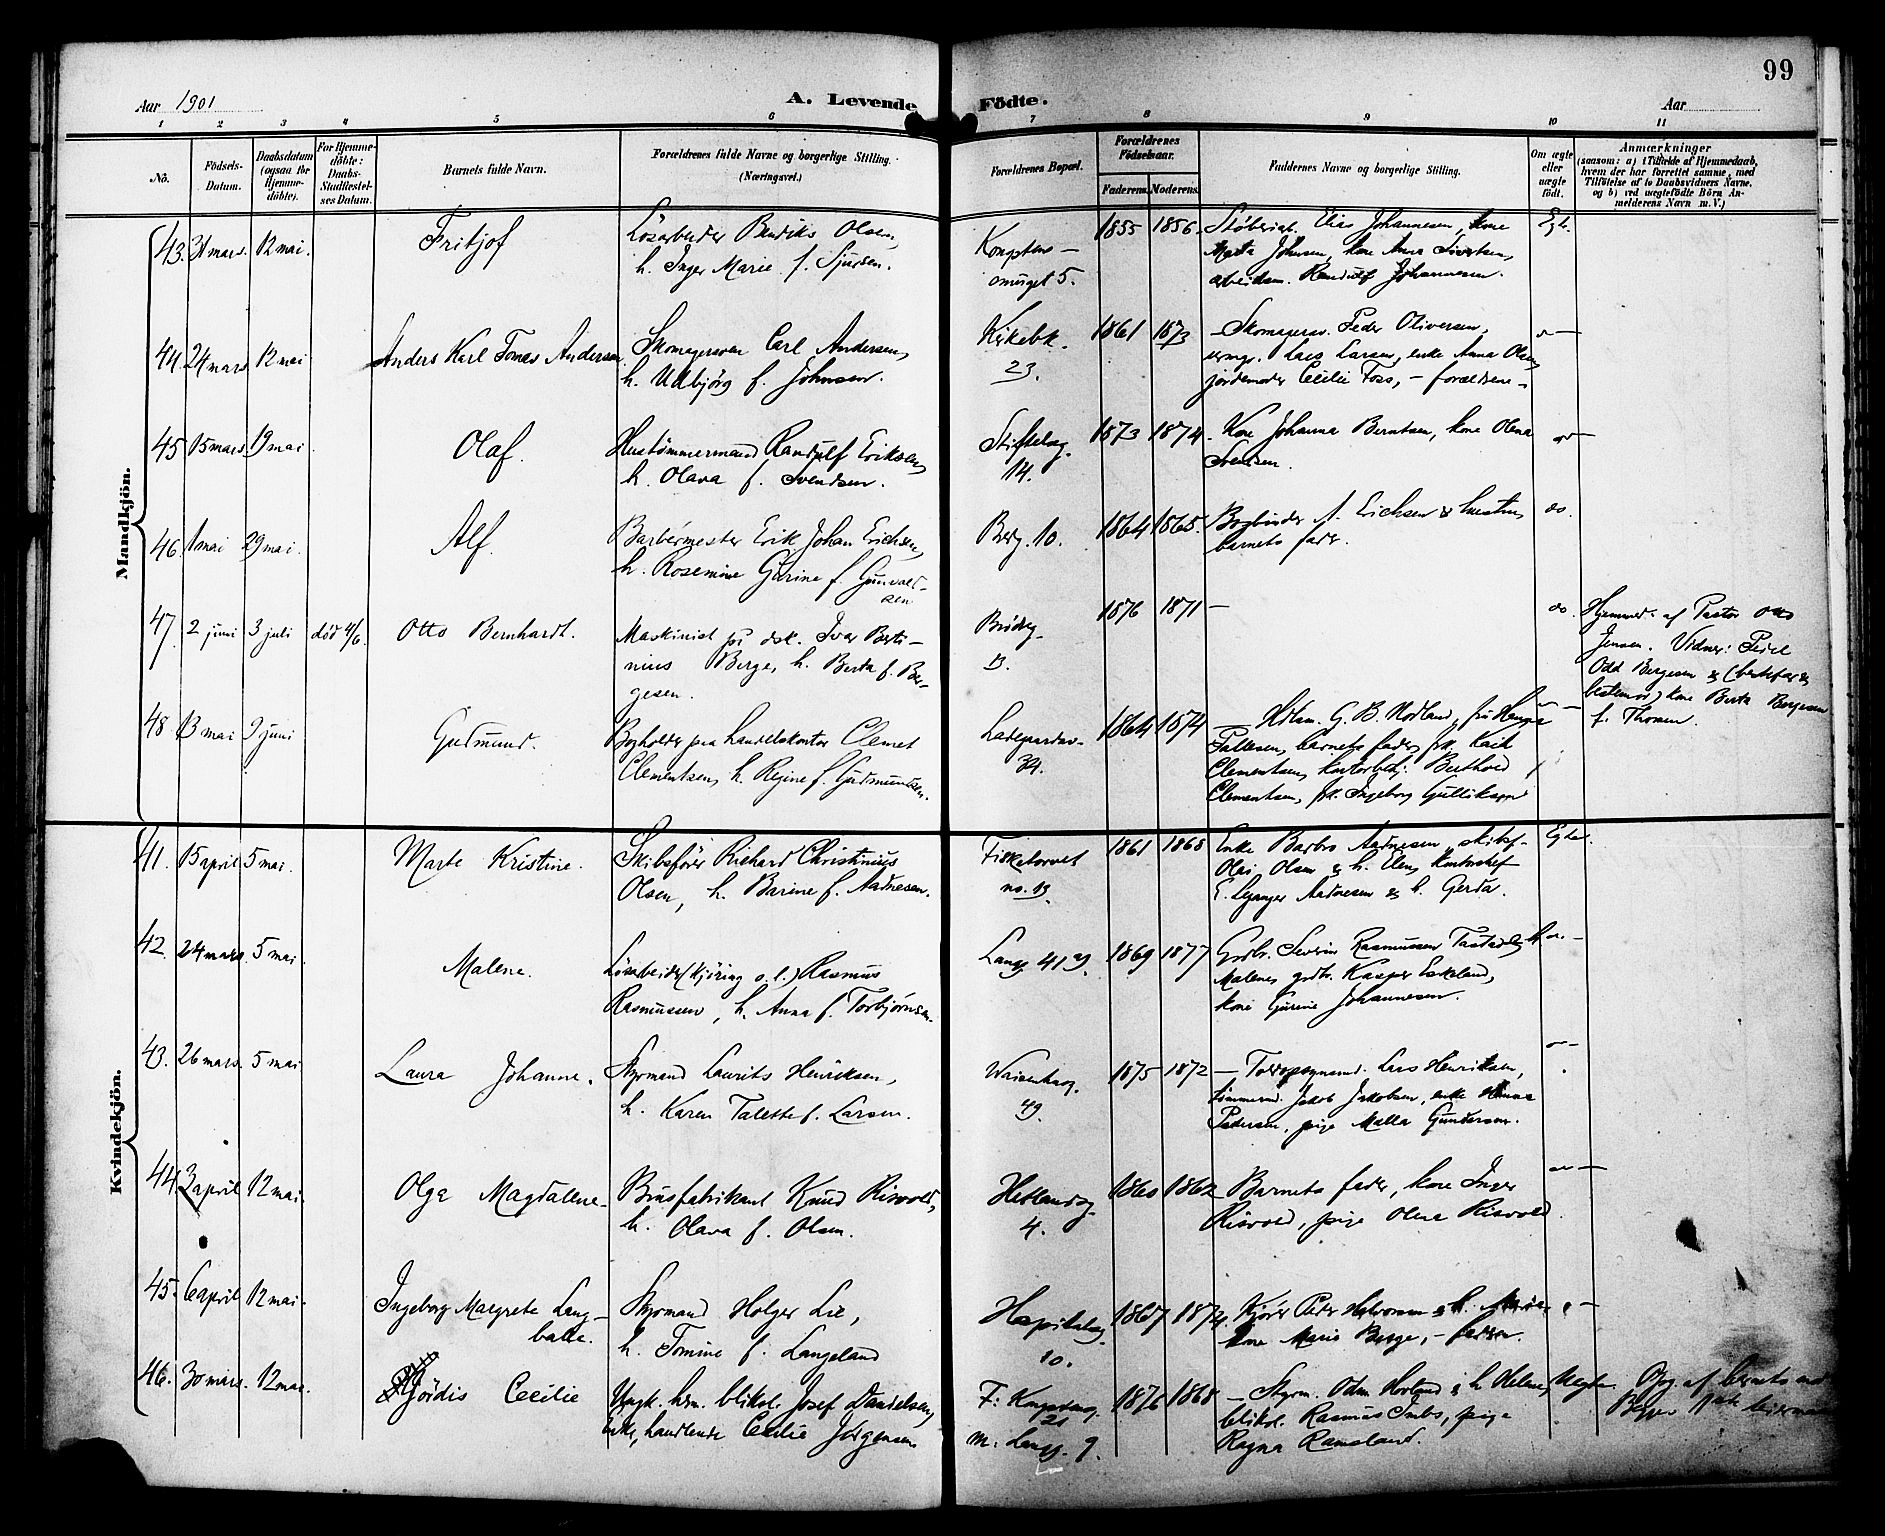 99
Aar 1901
A. Levende Födte.
Aar
1 2 3 4 5 6 7 8 9 10 11
No.
Födsels-
Datum.
Daabsdatum
(ogsaa for
Hjemme-
döbte).
For Hjemme-
döbte:
Daabs-
Stadfæstel-
ses Datum.
Barnets fulde Navn.
Forældrenes fulde Navne og borgerlige Stilling.
(Næringsvei.)
Forældrenes Bopæl.
Forældrenes
Födselsaar.
Faderens. Moderens.
Faddernes Navne og borgerlige Stilling.
Om ægte
eller
uægte
födt.
Anmærkninger
(saasom: a) i Tilfælde af Hjemmedaab,
hvem der har forrettet samme, med
Tilföielse af to Daabsvidners Navne,
og b) ved uegtefödte Börn An-
melderens Navn m. V.)
Mandkjön.
43. 31 mars. 12 mai. Fritjof
Lösarbeider Bendiks Olsen,
h. Inger Marie f. Sjursen.
5.
1855 1856
Elias Johannesen, kone
Marta Johnsen, kone Anna Sivertsen,
Johannesen.
Egte.
44. 24 mars 12 mai Anders Karl Tomas Andersen
Skomagersven Carl Andersen,
h. Udbjörg f. Johnsen.
Kirkebk.
23.
1861 1873
Skomagersv. Peder Oliversen,
Lars Larsen, enke Anna Olsen,
jordemoder Cecilie Foss, - forældrene -
45 15 mars 19 mai Olaf.
Hustömmermand Randulf Eriksen,
h. Olava f. Svendsen.
Stiftelsg.
14.
1873 1874
Kone Johanna Berntsen, kone Olena
Svendsen.
46. 1 mai 29 mai. Alf.
Barbermester Erik Johan Erichsen,
h. Rosemine Gurine f. Gunvald-
sen
Berg. 10.
1864 1865.
Bogbinder A. Erichsen & hustru,
barnets fader.
do.
47. 2 juni 3 juli död 4/6. Otto Bernhardt.
Maskinist på dsk. Ivar Berti-
nius Berge, h. Berta f. Ber-
gesen.
13.
1876 1871
—
do.
Hjemmed. af Pastor Otto
Jensen. Vidner:
Odd Bergesen &
bestemor) kone Berta Bergesen
f. Thorsen.
48 13 mai 9 juni Gudmund.
Bogholder paa handelskontor Clemet
Clementsen, h. Regine f. Gudmundsen.
Ladegaardsv.
34.
1864 1874
G. B. Nodland, fru
barnets fader, frk.
Clementsen, kontorbetj. Berthold
Clementsen, frk. Ingeborg
Kvindekjön.
41. 15 april 5 mai. Marte Kristine.
Skibsförer Richard Christinius
Olsen, h. Barine f. Aadnesen.
Fisketorvet
no. 13.
1861 1868
Enke Barbro Aadnesen, skibsf.
Olai Olsen & h. Elen,
E. Leganger Aadnesen & h. Gerda.
Egte.
42. 24 mars. 5 mai. Malene.
Lösarbeider (kjöring o.l.) Rasmus
Rasmussen, h. Anna f. Torbjørnsen.
Langg 41
1869 1877
Grdbr. Severin Rasmussen
Malene, grdbr. Kasper Eskeland,
kone Gurine Johannesen.
43. 26 mars. 5 mai Laura Johanne.
Styrmand Laurits Henriksen,
h. Karen Talette f. Larsen.
Waisenhusg.
49.
1875 1872
Toldopsynsmd. Lars Henriksen,
tömmermd. Jakob Jakobsen, enke
Pedersen, pige Malla Gundersen.
44. 3 april 12 mai. Olga Magdalene
Brusfabrikant Knud Risvold,
h. Olava f. Olsen.
Hetlandsg.
4.
1860 1862
Barnets fader, kone Inger
Risvold, pige Olena Risvold.
45. 6 april 12 mai. Ingeborg Margrete Lang-
balle.
Styrmand Holger Lie,
h. Tomine f. Langeland
Hospitalsg.
10.
1867 1874.
Kjörer Peder Halvorsen & h.
kone Marie Berge, - faderen.
46. 30 mars. 12 mai. Hjördis Cecilie
Ungk. hrm. bliksl. Josef Danielsen,
Enke, handlende Cecilie Jörgensen
F: Kongsteng.
21
M: Langg. 9.
1876 1868
Styrm. Odm. Hovland & h Helene,
bliksl. Rasmus Imbs, pige
Ragna Ramsland.
Uegte.